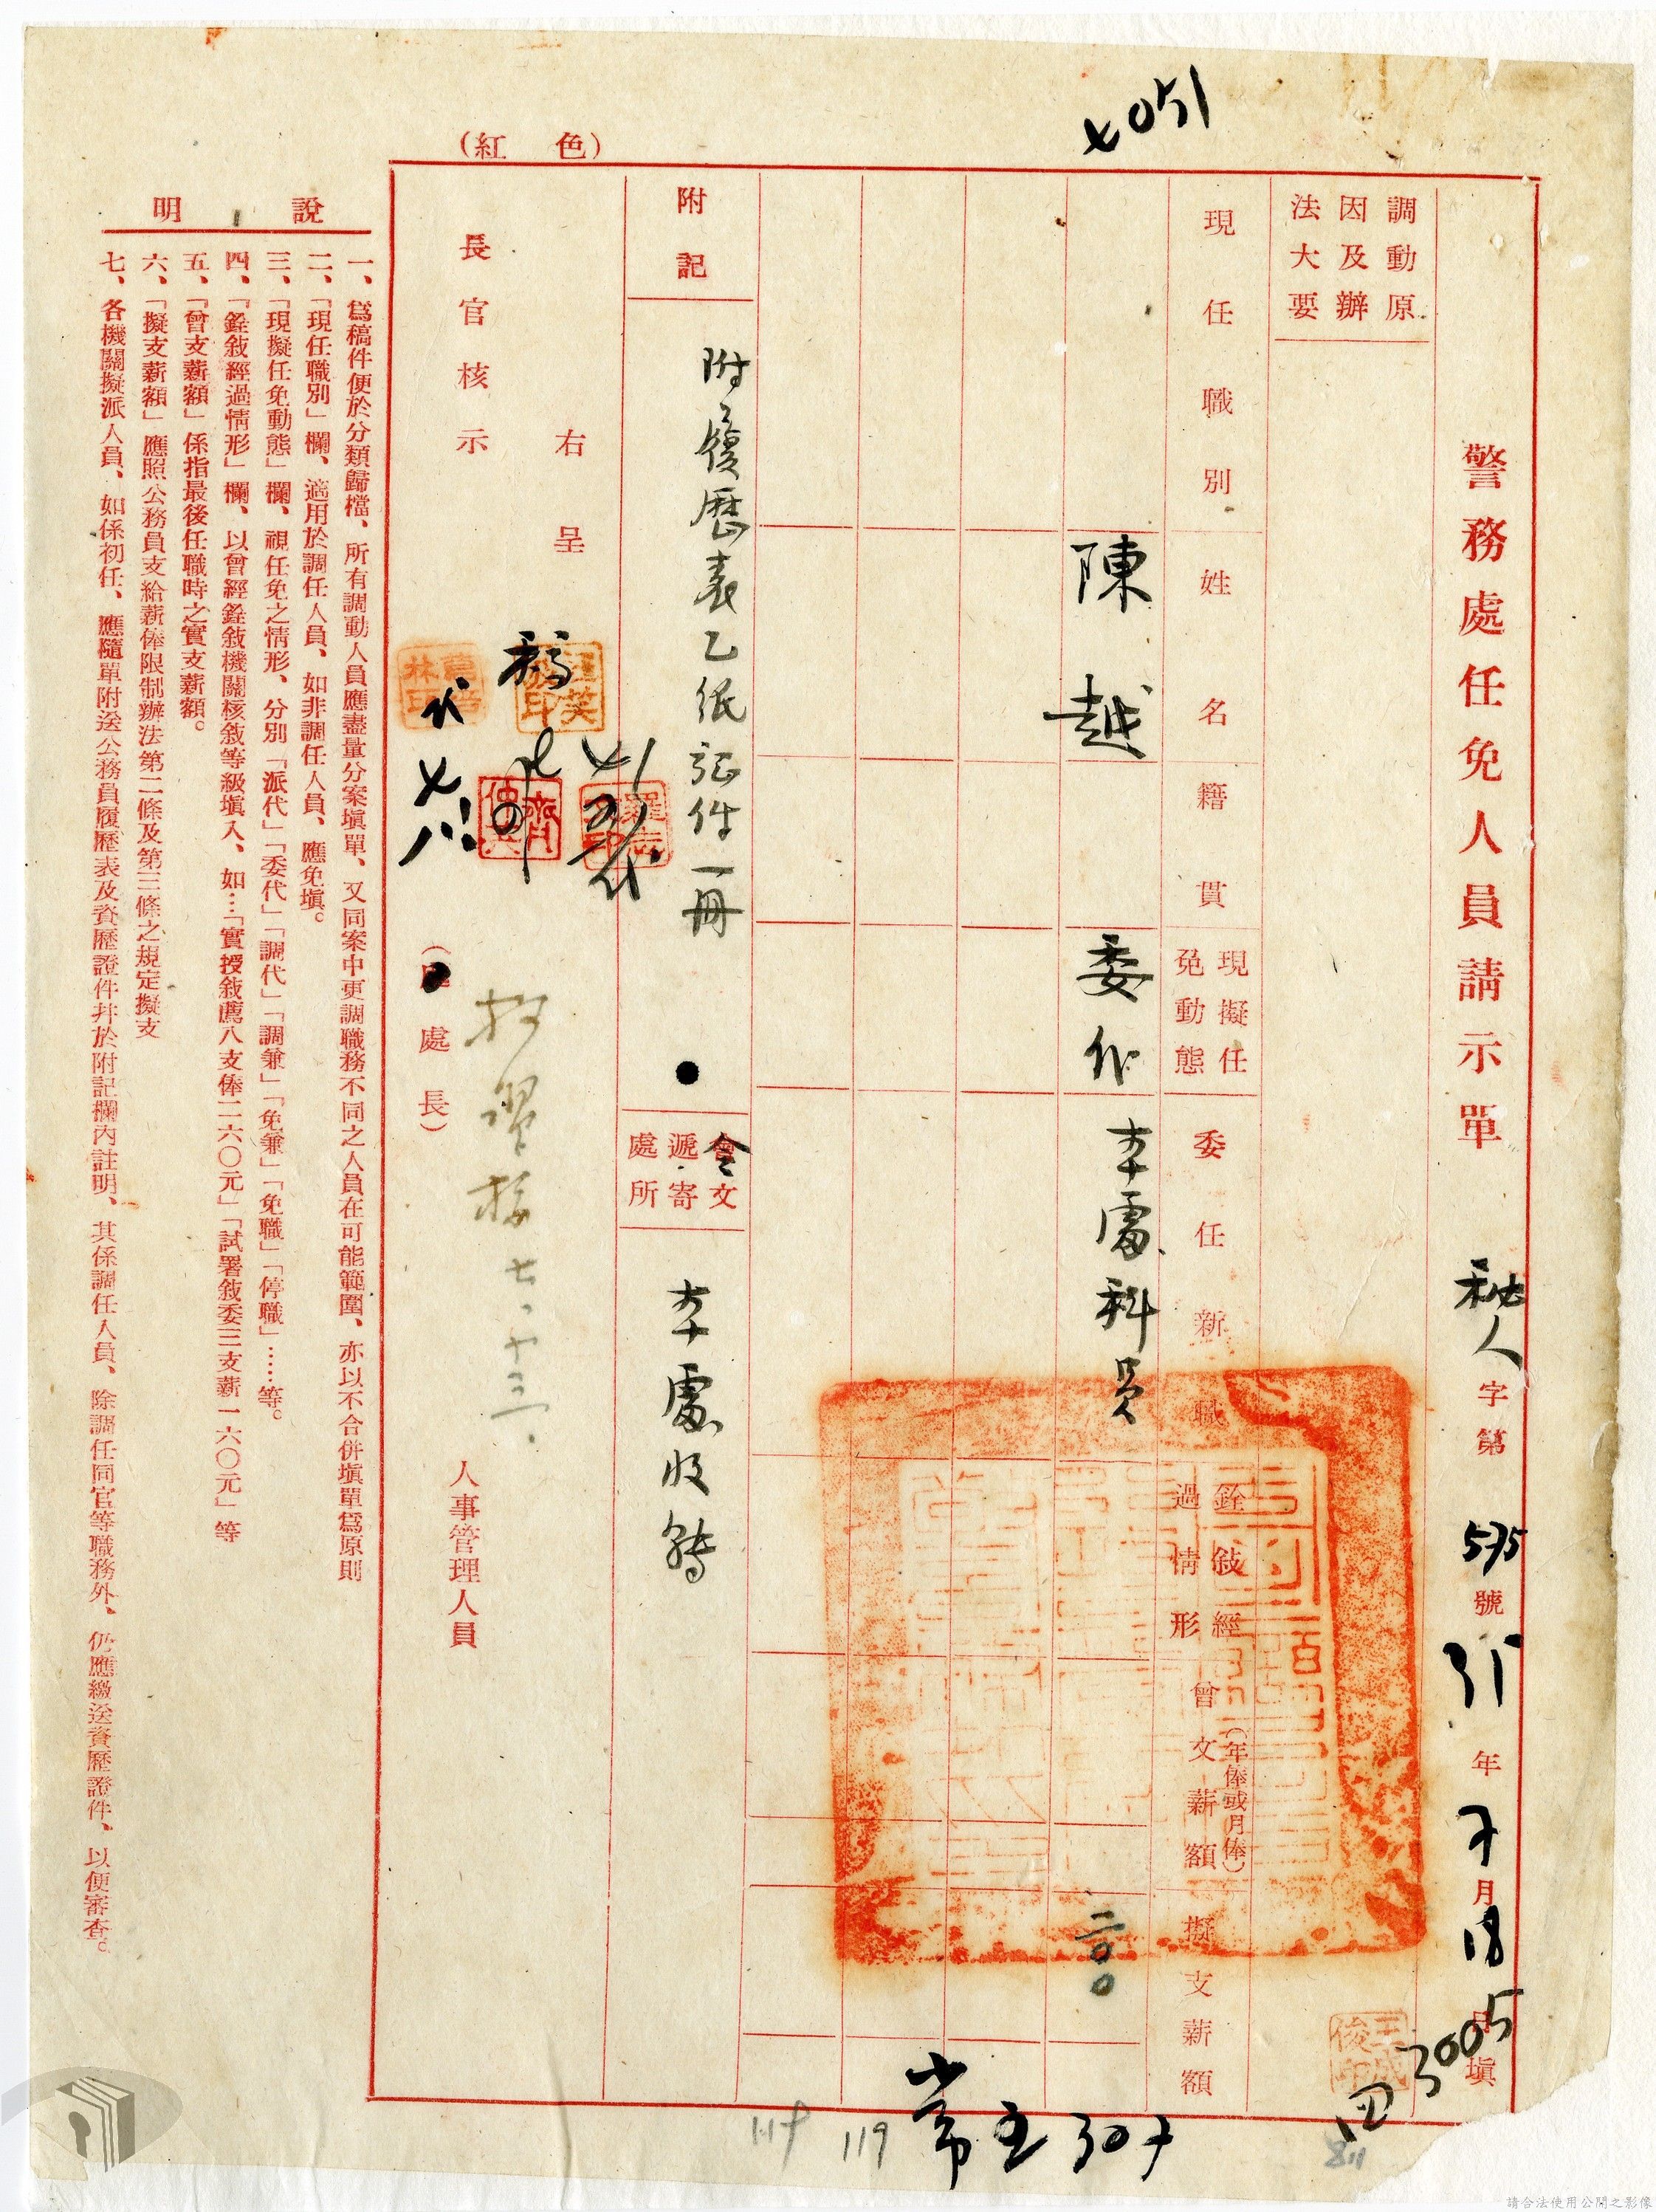 4051
(紅色)
警務處任免人員請示單
秘人字第575號35年7月18日填
調動原
因及辦
法大要
現任職別
姓名
籍貫
現擬任
免動態
委任新職
銓敍經
過情形
曾支薪額
(年俸或月俸)
擬支薪額
陳越
委代
本處科員
二〇〇
附記
附履歷表乙紙證件一冊
會文
遞寄
處所
本處收轉
右呈
長官核示
(處長)
人事管理人員
說明
一、爲稿件便於分類歸檔、所有調動人員應盡量分案塡單、又同案中更調職務不同之人員在可能範圍、亦以不合併塡單爲原則
二、「現任職別」欄、適用於調任人員、如非調任人員、應免塡。
三、「現擬任免動態」欄、視任免之情形、分別「派代」「委代」「調代」「調兼」「免兼」「免職」「停職」……等。
四、「銓敍經過情形」欄、以曾經銓敍機關核敍等級塡入、如…「實授敍薦八支俸二六〇元」「試署敍委三支薪一六〇元」等
五、「曾支薪額」係指最後任職時之實支薪額。
六、「擬支薪額」應照公務員支給薪俸限制辦法第二條及第三條之規定擬支
七、各機關擬派人員、如係初任、應隨單附送公務員履歷表及資歷證件并於附記欄內註明、其係調任人員、除調任同官等職務外、仍應繳送資歷證件、以便審查。
七、十三、
3005
119
請合法使用公開之影像